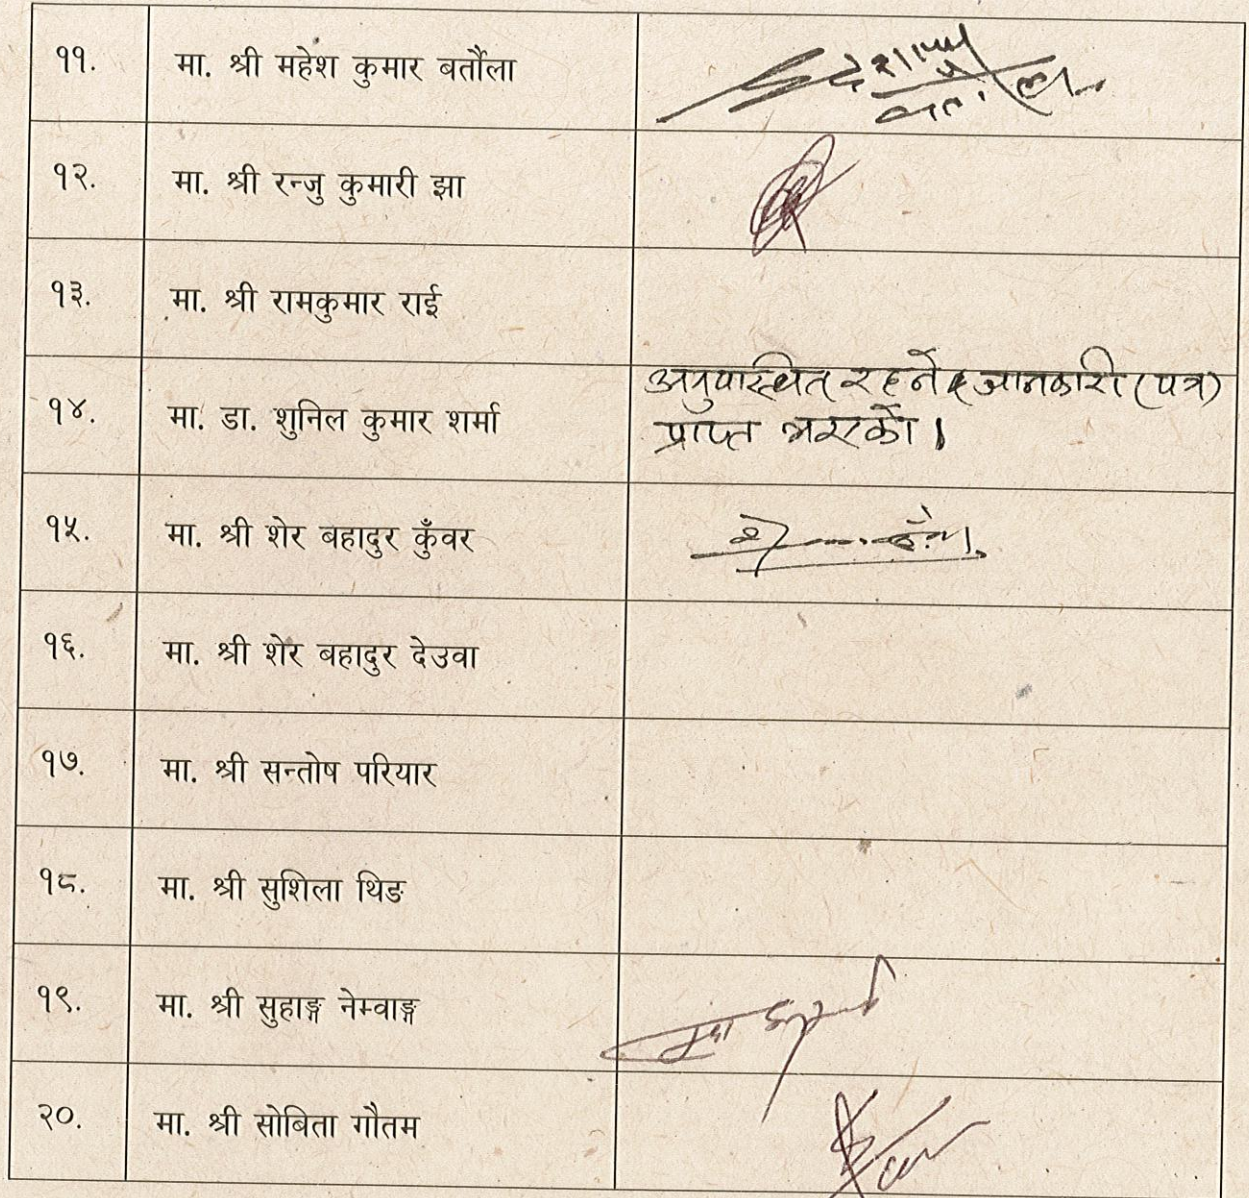 ११. मा. श्री महेश कुमार बर्तौला
१२. मा. श्री रन्जु कुमारी झा
१३. मा. श्री रामकुमार राई
अनुपस्थित रहने जानकारी (पत्र)
१४. मा. डा. शुनिल कुमार शर्मा प्राप्त भएको।
१५. मा. श्री शेर बहादुर कुँवर
१६. मा. श्री शेर बहादुर देउवा
१७. मा. श्री सन्तोष परियार
१८. मा. श्री सुशिला थिङ
१९. मा. श्री सुहाङ्ग नेम्वाङ्ग
२०. मा. श्री सोबिता गौतम